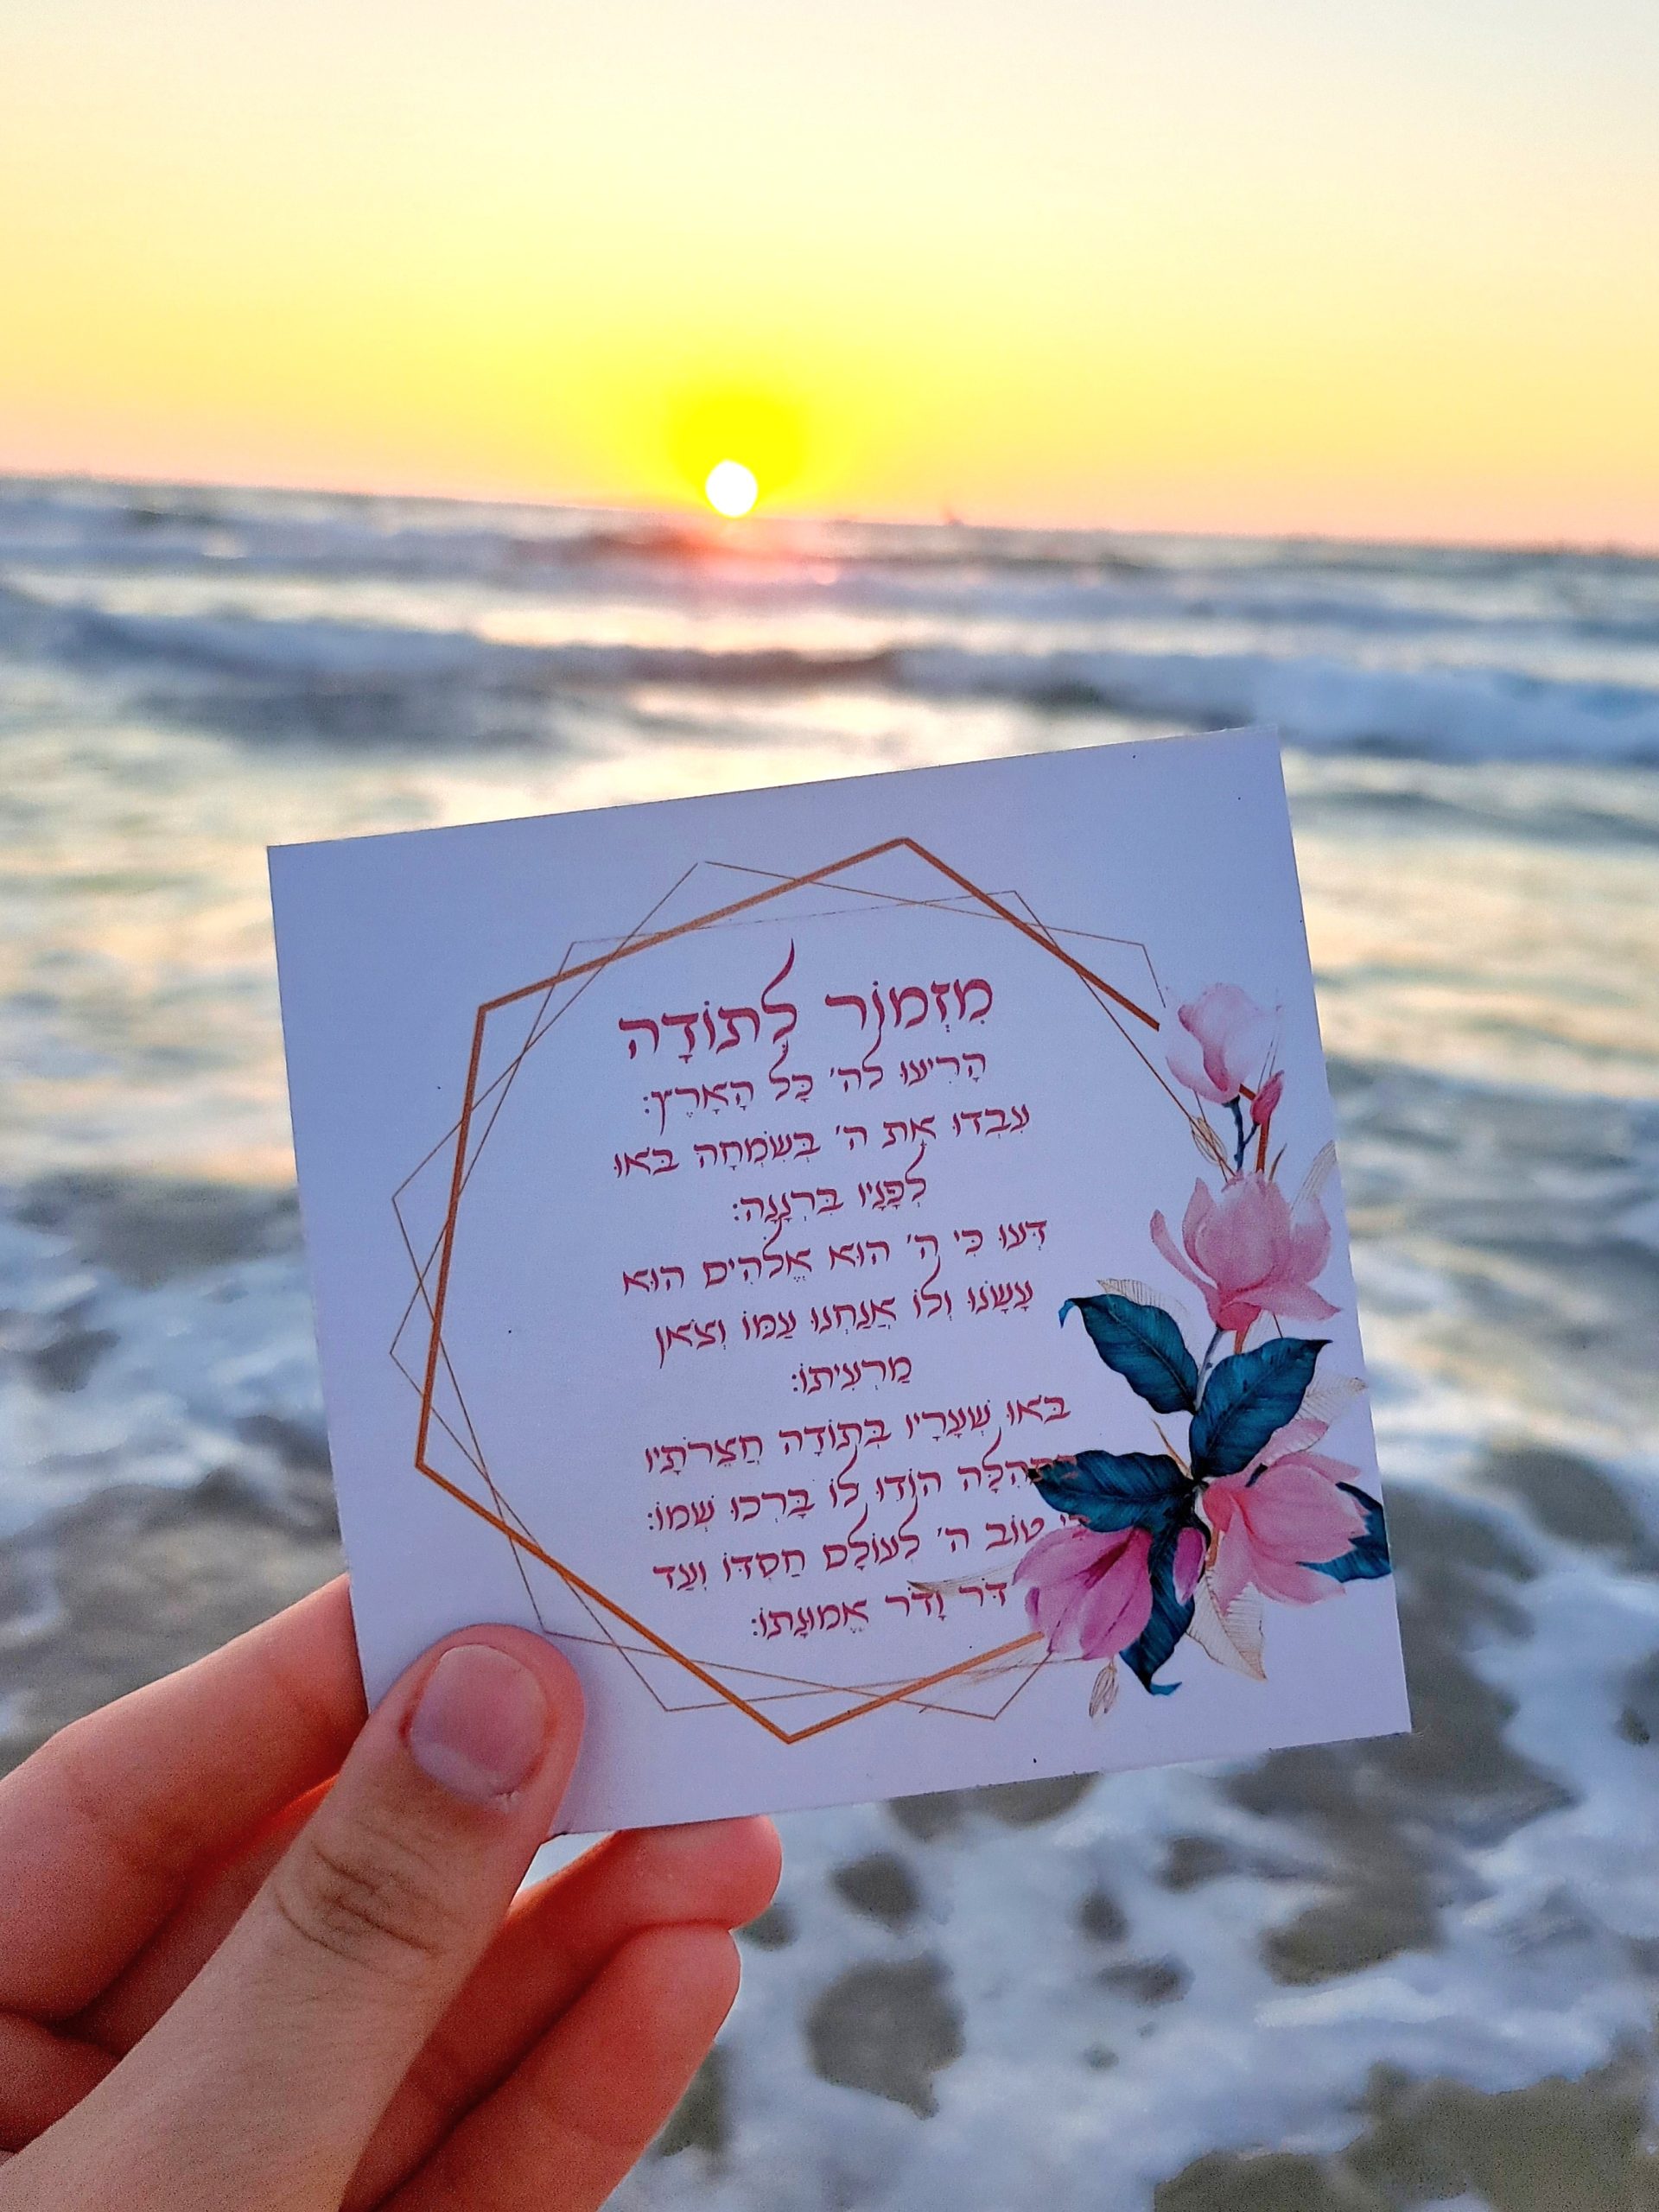 מִזְמוֹר לְתוֹדָה
הָרִיעוּ לה' כָּל הָאָרֶץ:
עִבְדוּ אֶת ה' בְּשִׂמְחָה בֹּאוּ
לְפָנָיו בִּרְנָנָה:
דְּעוּ כִּי ה' הוּא אֱלֹהִים הוּא
עָשָׂנוּ וְלוֹ אֲנַחְנוּ עַמּוֹ וְצֹאן
מַרְעִיתוֹ:
בֹּאוּ שְׁעָרָיו בְּתוֹדָה חֲצֵרֹתָיו
הוֹדוּ לוֹ בָּרְכוּ שְׁמוֹ:
טוֹב ה' לְעוֹלָם חַסְדּוֹ וְעַד
דֹּר וָדֹר אֱמוּנָתוֹ: